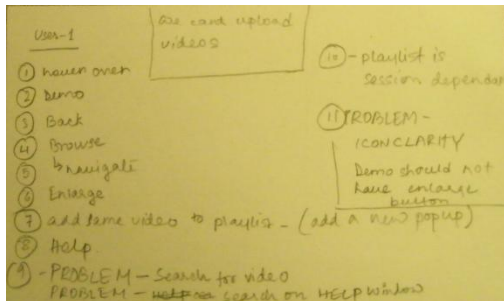 User-1
we cant upload
videos
① hover over
② Demo
③ Back
④ Browse
⑤ ↳ navigate
⑥ Enlarge
⑦ add same video to playlist - (add a new popup)
⑧ Help
⑨ - PROBLEM - Search for video
PROBLEM - search on HELP window
⑩ - playlist is
session dependant
⑪ PROBLEM -
ICON CLARITY
Demo should not
have enlarge
button